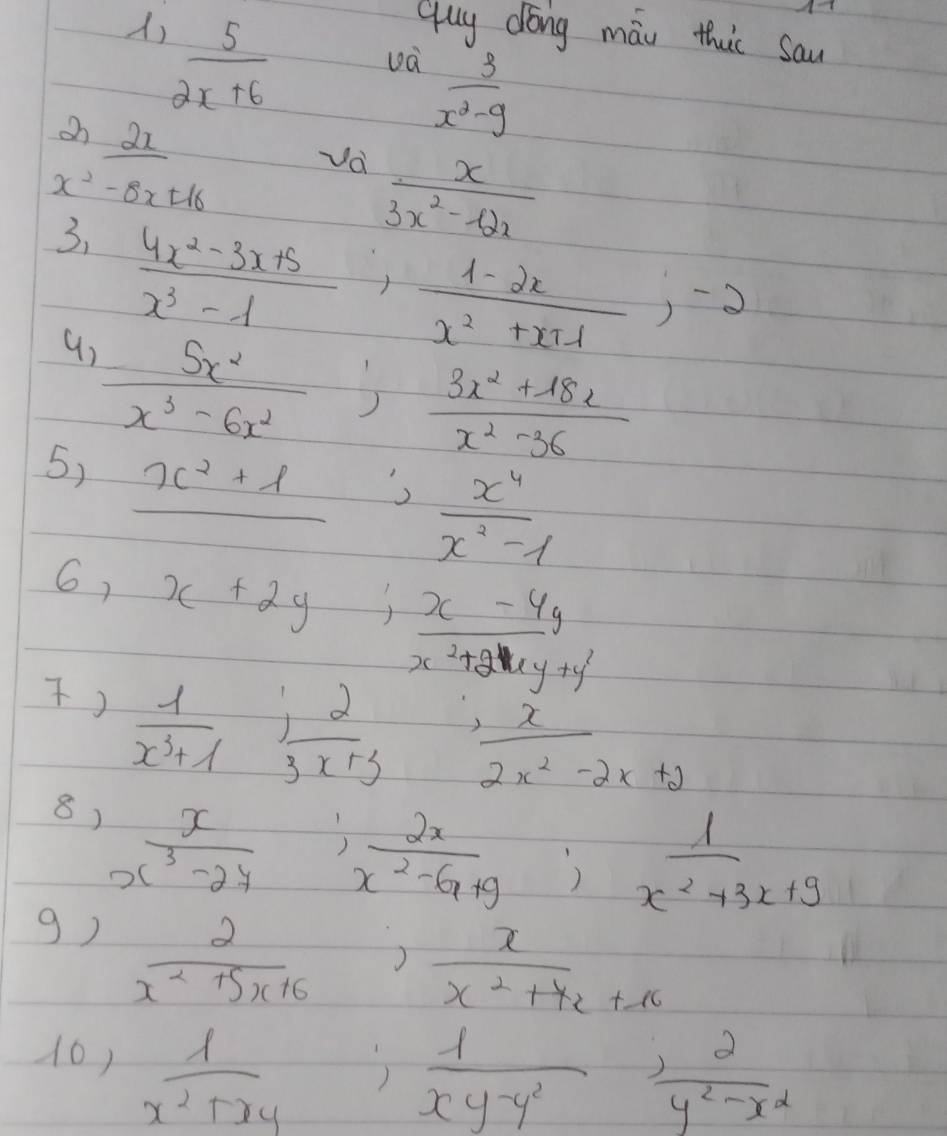 quy đồng mẫu thức sau
1) 5/(2x+6) và 3/(x²-9)
2) 2x/(x²-8x+16) và x/(3x²-12x)
3, (4x²-3x+5)/(x³-1) ; (1-2x)/(x²+x+1) ; -2
4) 5x²/(x³-6x²) ; (3x²+18x)/(x²-36)
5) x²+1 ; x⁴/(x²-1)
6) x+2y ; (x-4y)/(x²+2xy+y²)
7) 1/(x³+1) ; 2/(3x+3) ; x/(2x²-2x+2)
8) x/(x³-27) ; 2x/(x²-6x+9) ; 1/(x²+3x+9)
9) 2/(x²+5x+6) ; x/(x²+7x+16)
10) 1/(x²+xy) ; 1/(xy-y²) ; 2/(y²-x²)